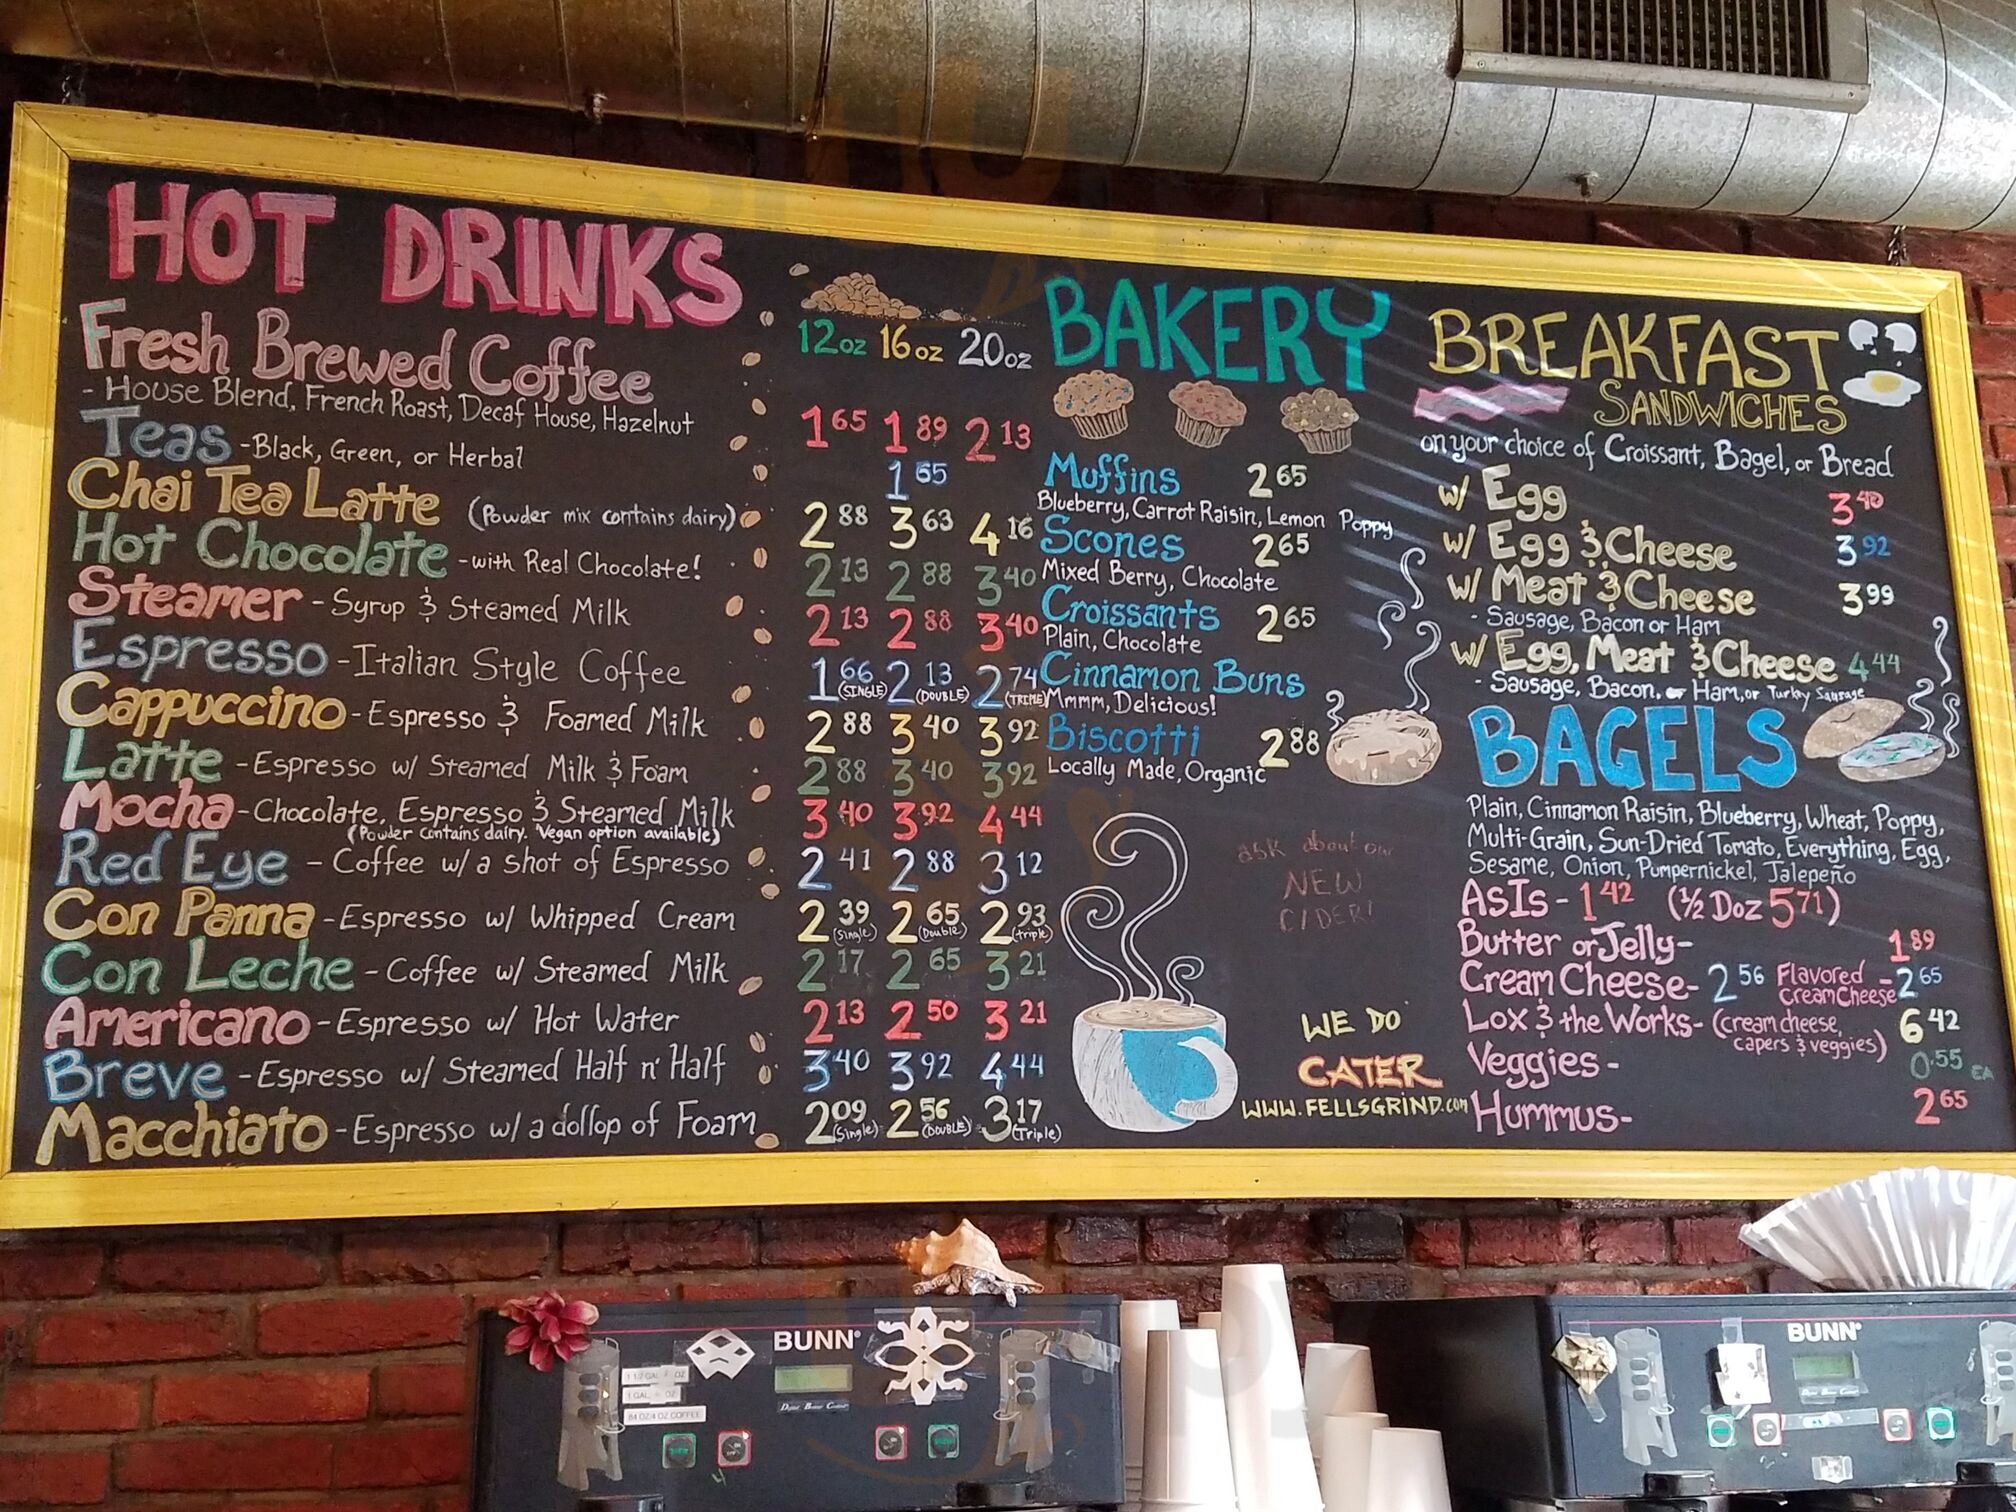 HOT DRINKS
12oz 16oz 20oz
Fresh Brewed Coffee
- House Blend, French Roast, Decaf House, Hazelnut
1.65 1.89 2.13
Teas - Black, Green, or Herbal
1.65
Chai Tea Latte (Powder mix contains dairy)
2.88 3.63 4.16
Hot Chocolate - with Real Chocolate!
2.13 2.88 3.40
Steamer - Syrup & Steamed Milk
2.13 2.88 3.40
Espresso - Italian Style Coffee
1.66 (SINGLE) 2.13 (DOUBLE) 2.74 (TRIPLE)
Cappuccino - Espresso & Foamed Milk
2.88 3.40 3.92
Latte - Espresso w/ Steamed Milk & Foam
2.88 3.40 3.92
Mocha - Chocolate, Espresso & Steamed Milk
(Powder contains dairy. Vegan option available)
3.40 3.92 4.44
Red Eye - Coffee w/ a shot of Espresso
2.41 2.88 3.12
Con Panna - Espresso w/ Whipped Cream
2.39 (Single) 2.65 (Double) 2.93 (triple)
Con Leche - Coffee w/ Steamed Milk
2.17 2.65 3.21
Americano - Espresso w/ Hot Water
2.13 2.50 3.21
Breve - Espresso w/ Steamed Half n' Half
3.40 3.92 4.44
Macchiato - Espresso w/ a dollop of Foam
2.09 (Single) 2.56 (DOUBLE) 3.17 (Triple)
BAKERY
Muffins 2.65
Blueberry, Carrot Raisin, Lemon Poppy
Scones 2.65
Mixed Berry, Chocolate
Croissants 2.65
Plain, Chocolate
Cinnamon Buns
Mmmm, Delicious!
Biscotti 2.88
Locally Made, Organic
ask about our
NEW
CIDER!
WE DO
CATER
WWW.FELLSGRIND.com
BREAKFAST
SANDWICHES
on your choice of Croissant, Bagel, or Bread
w/ Egg 3.40
w/ Egg & Cheese 3.92
w/ Meat & Cheese 3.99
- Sausage, Bacon or Ham
w/ Egg, Meat & Cheese 4.44
- Sausage, Bacon, or Ham, or Turkey Sausage
BAGELS
Plain, Cinnamon Raisin, Blueberry, Wheat, Poppy,
Multi-Grain, Sun-Dried Tomato, Everything, Egg,
Sesame, Onion, Pumpernickel, Jalepeño
AsIs - 1.42 (1/2 Doz 5.71)
Butter or Jelly - 1.89
Cream Cheese - 2.56 Flavored Cream Cheese - 2.65
Lox & the Works - (cream cheese, capers & veggies) 6.42
Veggies - 0.55 EA
Hummus - 2.65
BUNN
1 GAL
84 OZ/4 OZ COFFEE
BUNN